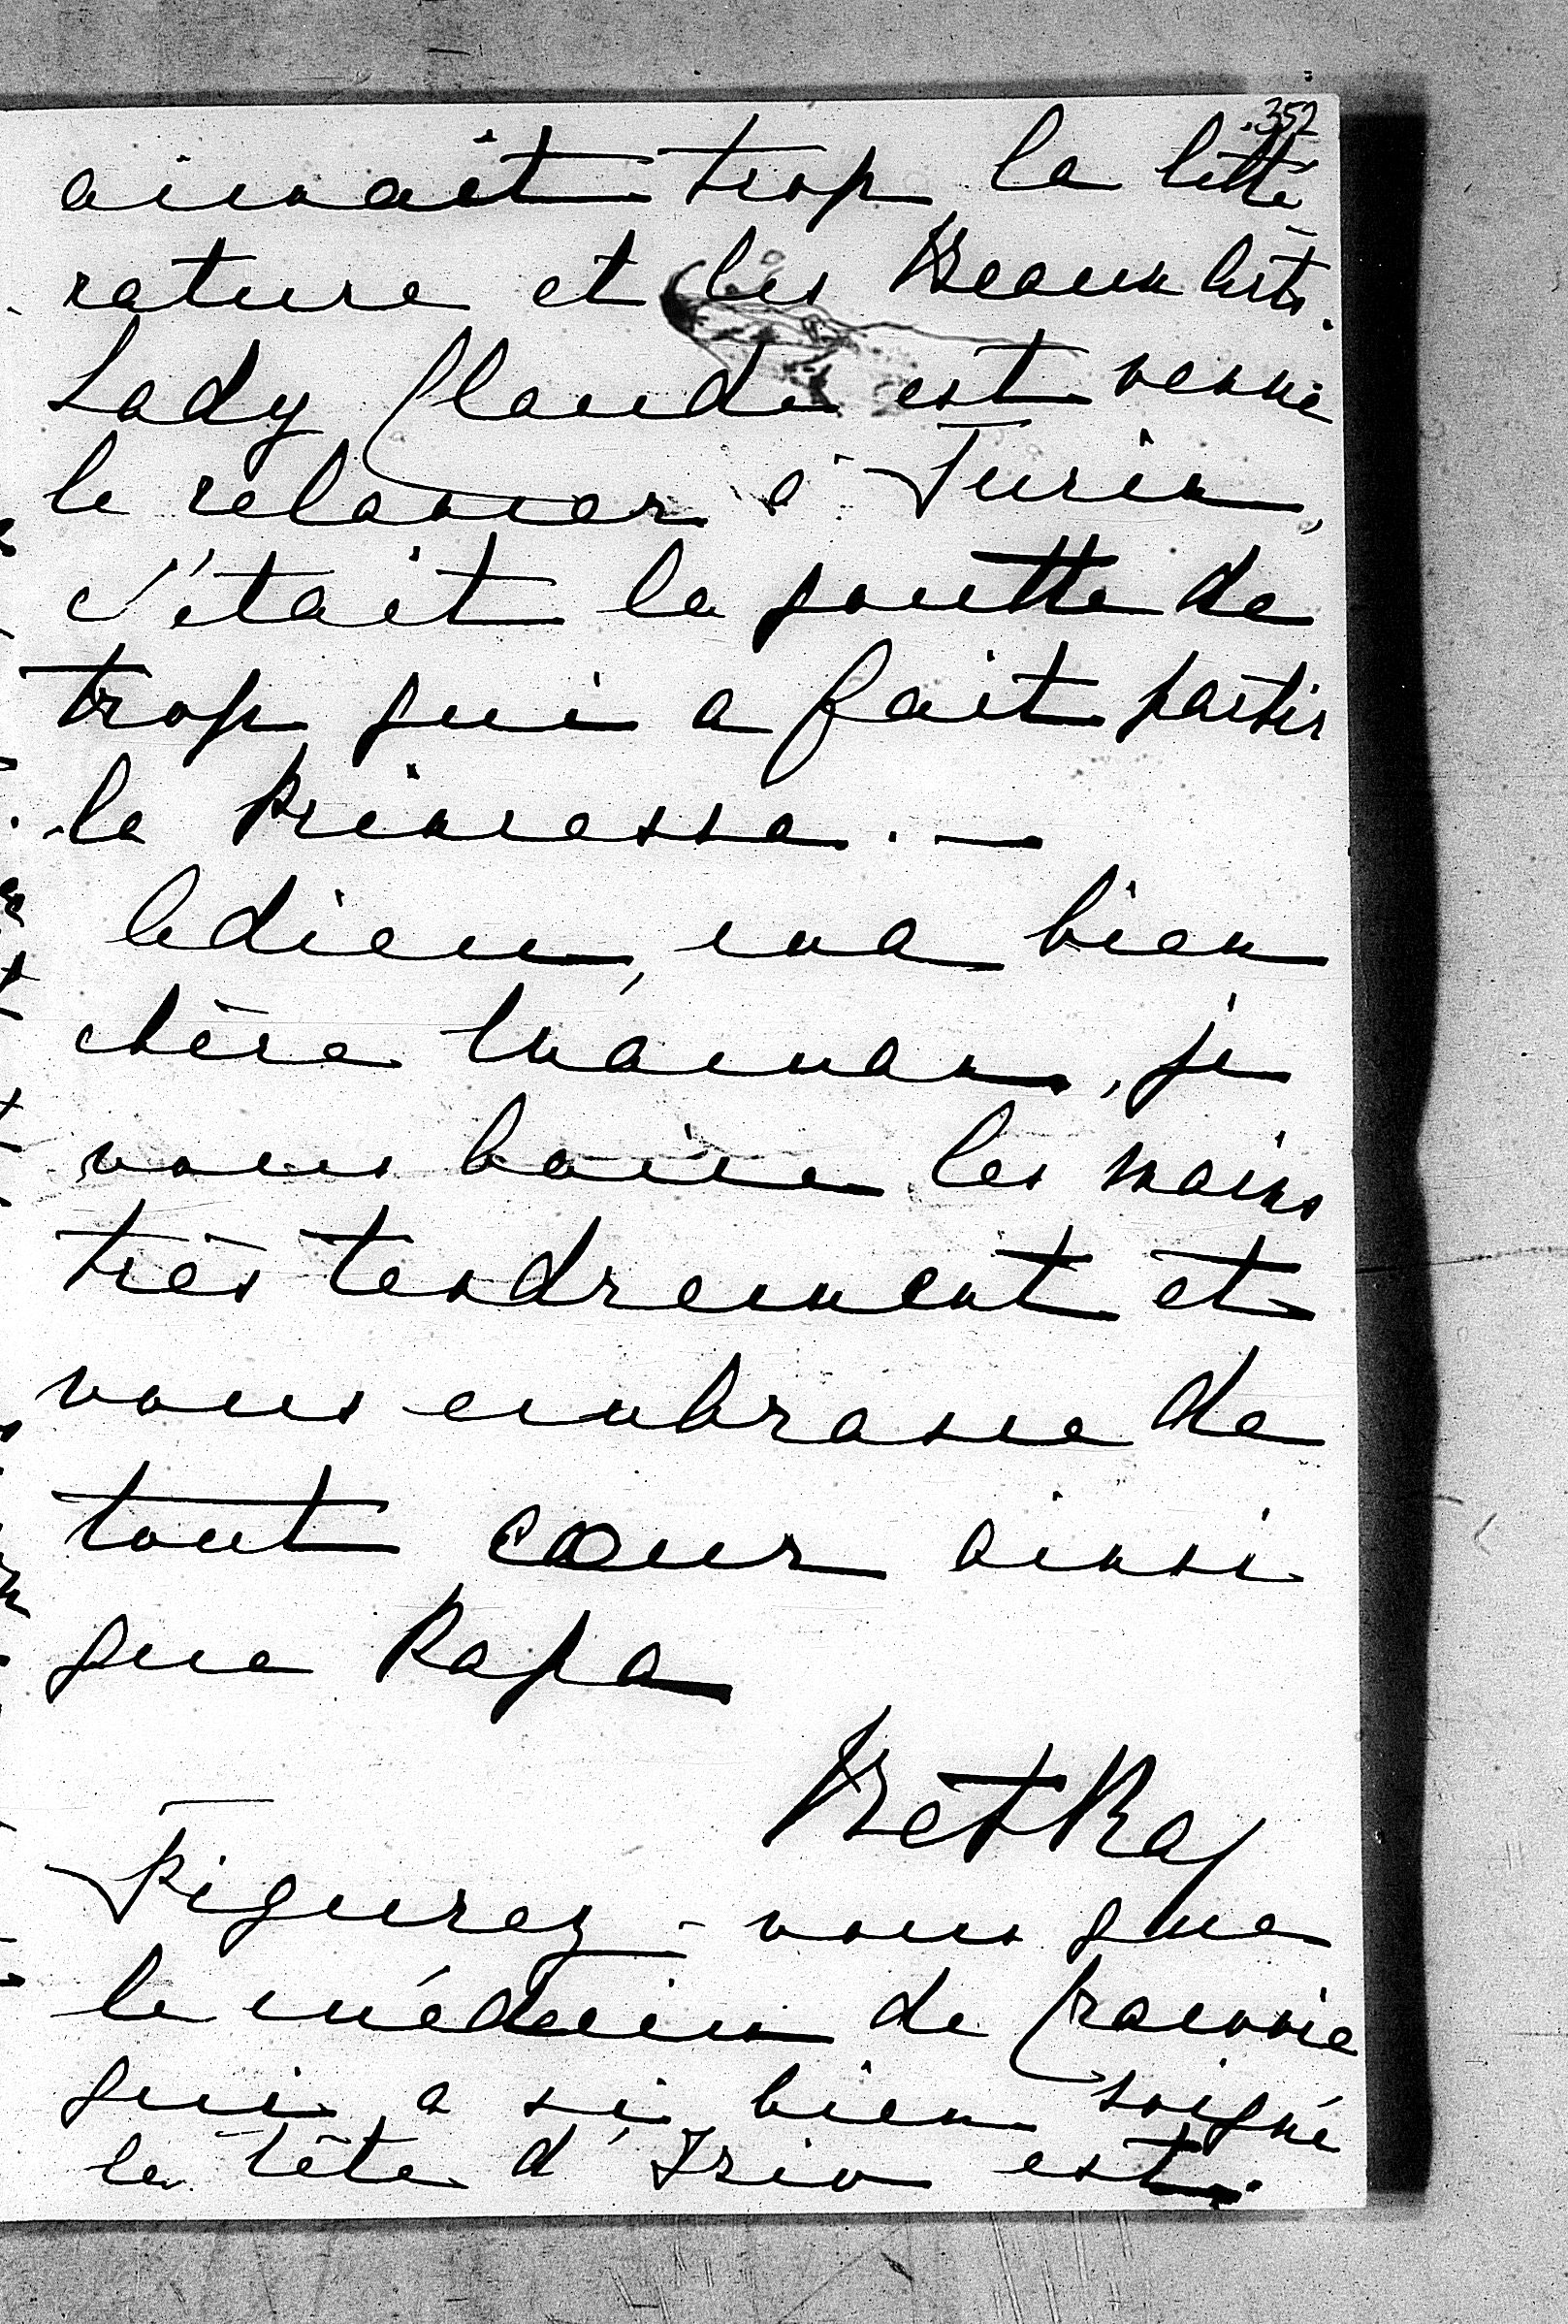 352
aimait trop la litté
rature et les Beaux Arts.
Lady Claude est venue
le relancer à Turin,
c'était la goutte de
trop qui a fait partir
la Princesse. —
Adieu, ma bien
chère Maman, je
vous baise les mains
très tendrement et
vous embrasse de
tout coeur ainsi
que Papa
Figurez-vous que
le médecin de
qui a si bien soigné
la tête d' est